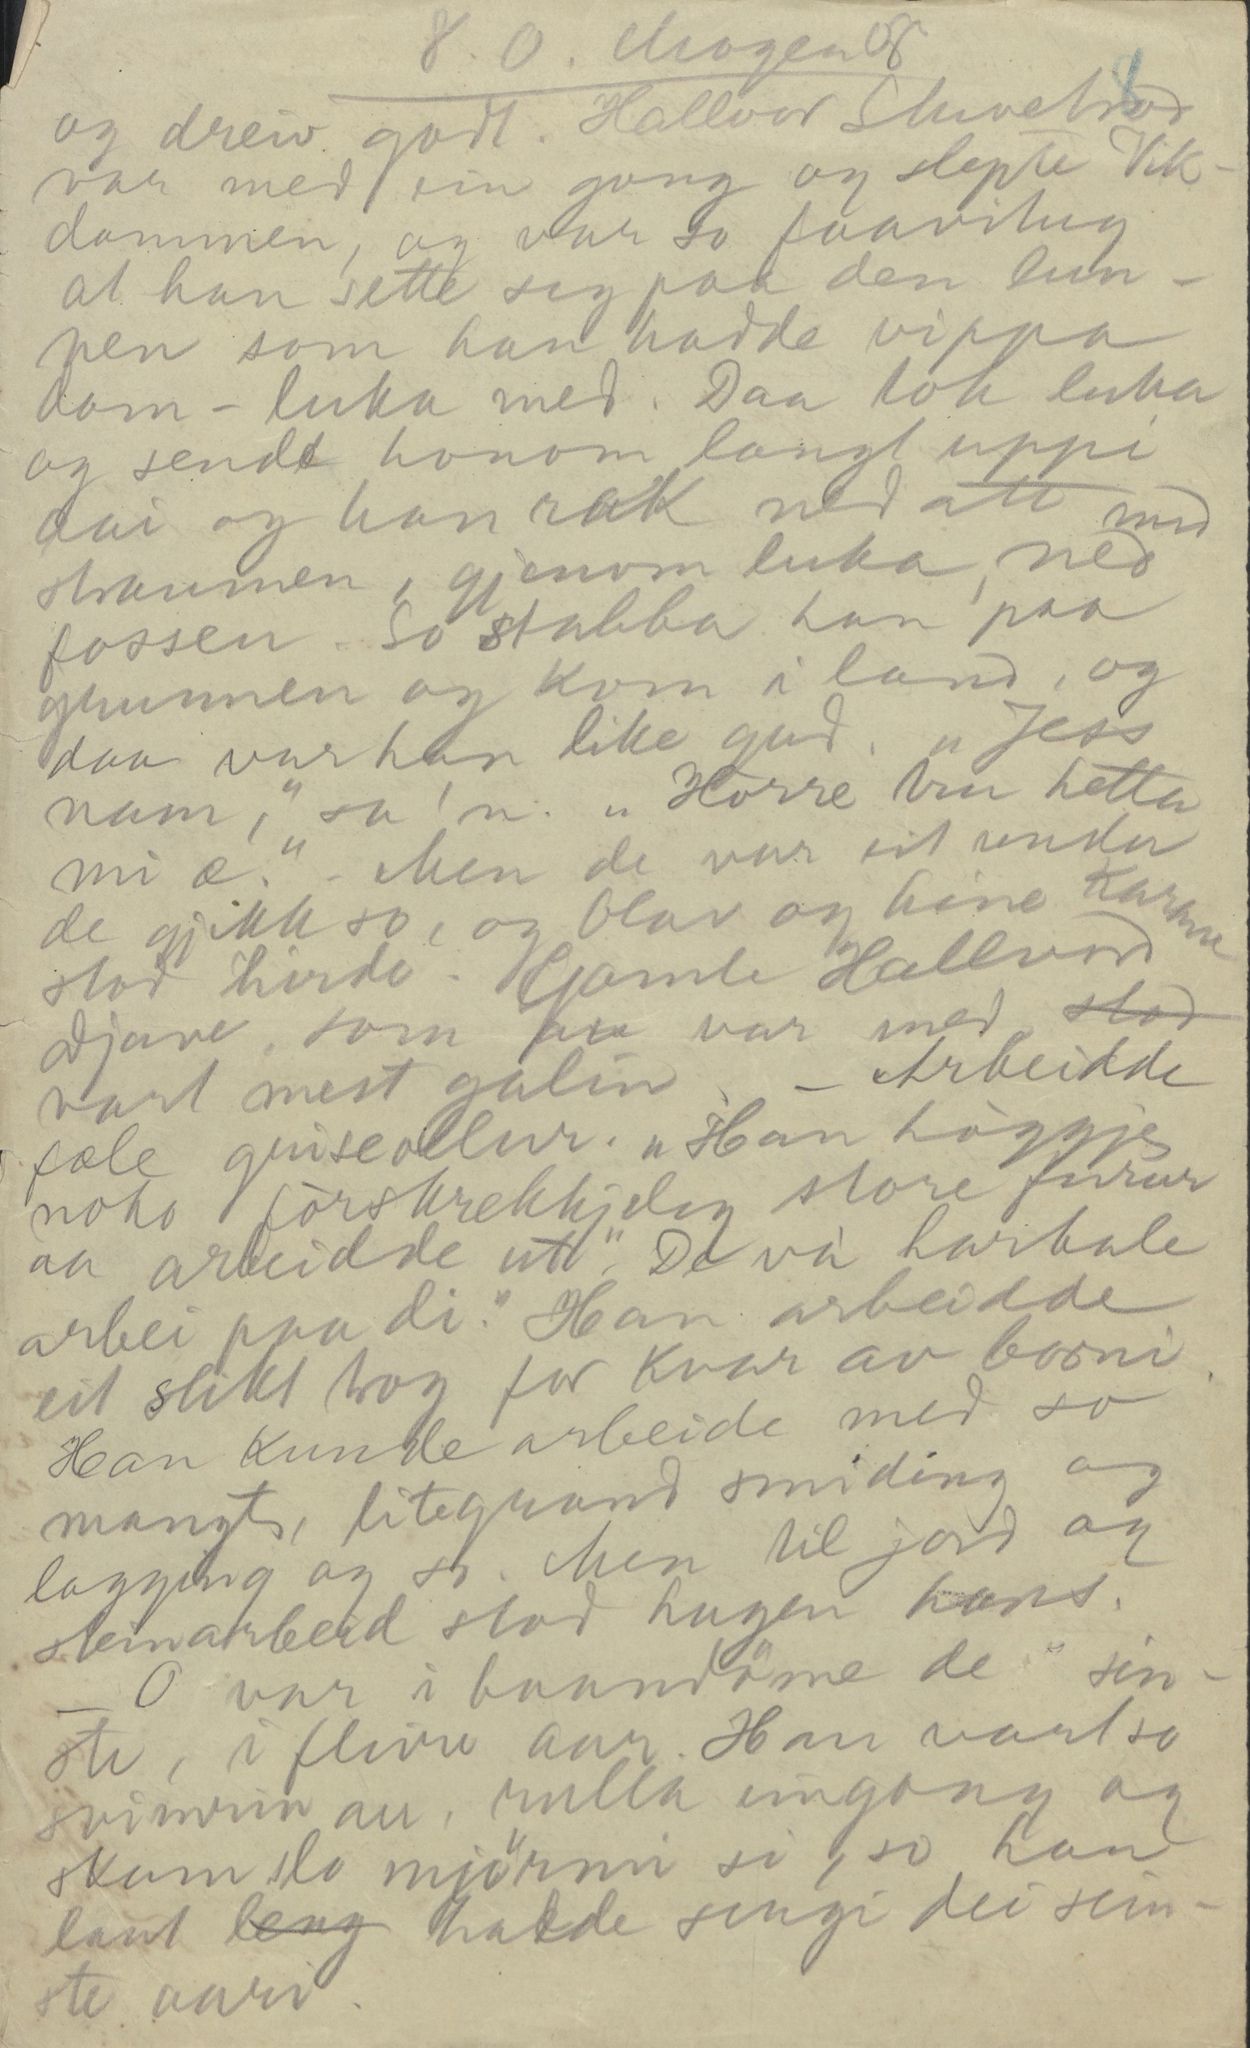 8. O. Mogen 8
8
og dreiv godt. Hallvor
var med ein gong og slepte Vik-
dammen, og var so faavitug
at han sette seg paa den lun-
nen som han hadde vippa
dam-luka med. Daa tok luka
og sendt honom langt uppi
aai og han rak ned att med
straumen, gjenom luka, ned
fossen. So stabba han paa
grunnen og kom i land, og
daa var han like gud. "Jess
nam," sa'n. "Hörre tru hetta
mi æ." - Men de var eit under
de gjekk so, og Olav og hine karane
stod hirde. Gamle Hallvord
Djave, som var med, stod
vart mest galin. - Arbeidde
fæle grisetlur. "Han höggje
noko förskrekkjeleg store furur
aa arbeidde uti". De va harbale
arbei paa di." Han arbeidde
eit slikt trog for kvar av borni.
Han kunde arbeide med so
mangt, litegrand smiding og
lagging og so. Men til jord og
steinarbeid stod hugen hans.
- O var i baandöme de sein-
ste, i fleire aar. Han vart so
svimrin au, rulla eingong og
skamslo mjörmi si, so han
laut leng halde sengi dei sein-
ste aari.